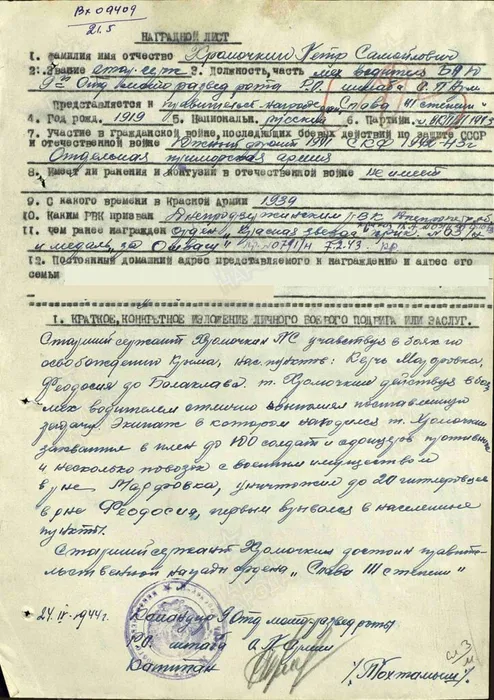 Вх 09409
21.5
НАГРАДНОЙ ЛИСТ
1. Фамилия имя отчество Хромочкин Петр Самойлович
2. Звание стар. серж 3. Должность, часть мех водитель БА
9й Отд. мото развед рота Р.О. штаба О.П.Арм
Представляется к правительств награде „Слава III степени"
4. Год рожд. 1919 5. Национальн. русский 6. Партийн.
7. Участие в гражданской войне, последующих боевых действий по защите СССР
и отечественной войне Южный фронт 1941 СКФ 1942-43г
Отдельная приморская армия
8. Имеет ли ранения и контузии в отечественной войне не имеет
9. С какого времени в Красной Армии 1939
10. Каким РВК призван Днепродзержинским РВК
11. Чем ранее награжден Орден „Красная звезда"
и медаль „за Отвагу" 7.2.43
12. Постоянный домашний адрес представляемого к награждению и адрес его
семьи
1. КРАТКОЕ, КОНКРЕТНОЕ ИЗЛОЖЕНИЕ ЛИЧНОГО БОЕВОГО ПОДВИГА ИЛИ ЗАСЛУГ.
Старший сержант Хромочкин ПС участвуя в боях по
освобождении Крыма, нас. пунктов: Керчь Марфовка,
Феодосия до Балаклава. т. Хромочкин действуя в бою
мех водителем отлично выполнял поставленную
задачу. Экипаж в котором находился т. Хромочкин
захватил в плен до 100 солдат и офицеров противника
и несколько повозок с военным имуществом
в р-не Марфовка, уничтожил до 20 гитлеровцев
в р-не Феодосия, первым врывался в населенные
пункты.
Старший сержант Хромочкин достоин правите-
льственной награды ордена „Слава III степени"
24.IV-1944г. Командир 9 Отд мото-развед роты
Р.О. штаба О.П. Армии
Капитан /Тохтамыш/